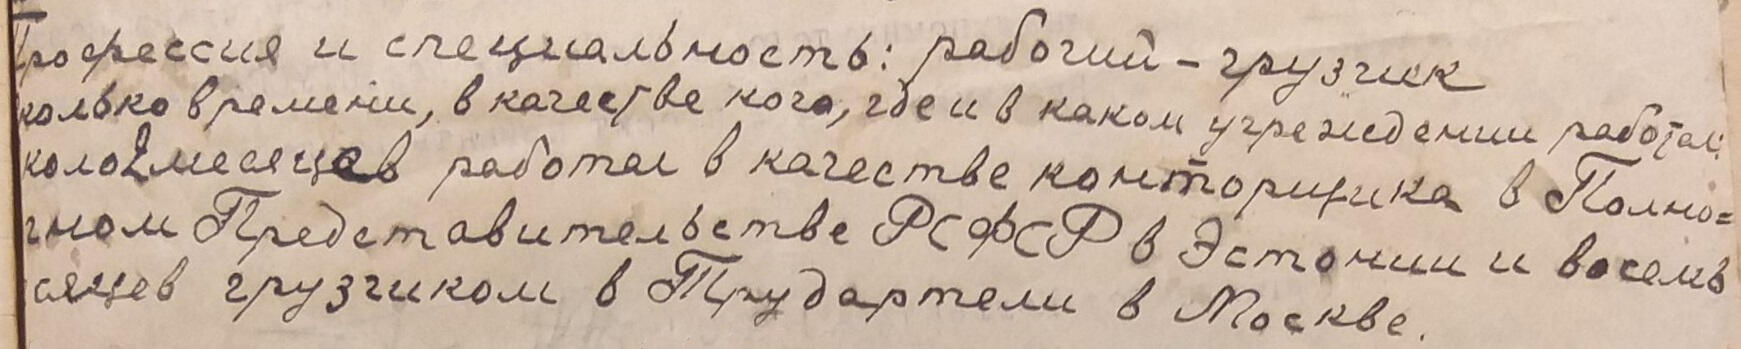 Профессия и специальность: рабочий - грузчик
колько времени, в качестве кого, где и в каком учреждении работал:
коло 2 месяцев работал в качестве конторщика в Полно=
чном Представительстве РСФСР в Эстонии и восемь
сяцев грузчиком в Трудартели в Москве.